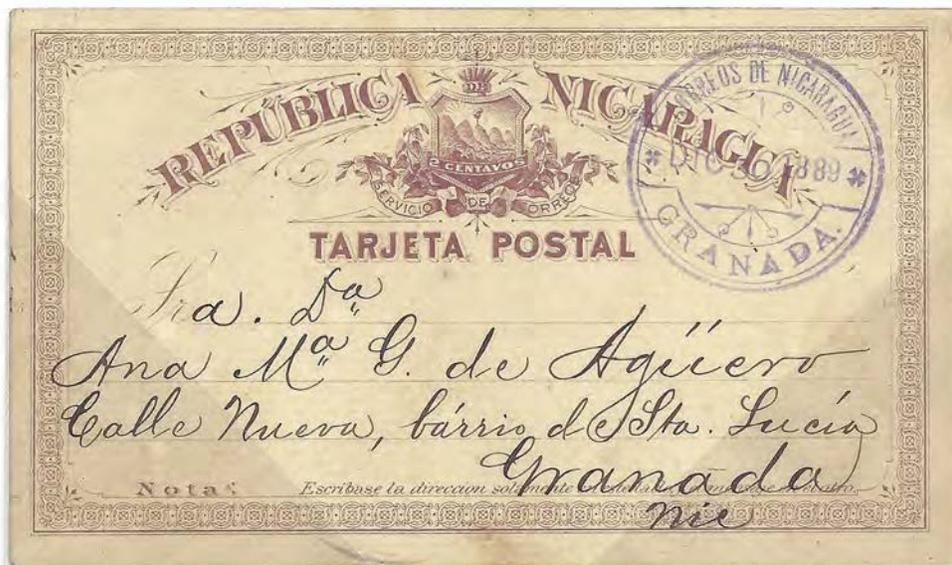 REPÚBLICA DE NICARAGUA
2 CENTAVOS
SERVICIO DE CORREOS
TARJETA POSTAL
CORREOS DE NICARAGUA
DIC 1889
GRANADA.
Sra. Dª
Ana Mª G. de Agüero
Calle Nueva, bárrio d Sta. Lucía
Granada
Nic
Nota: Escríbase la direccion solamente